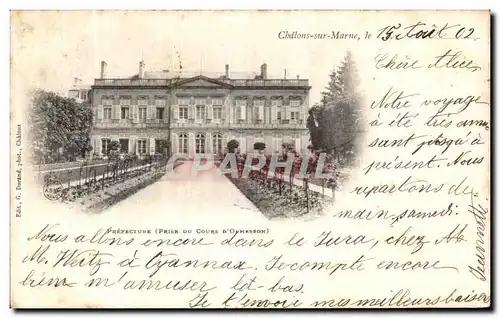 Châlons-sur-Marne, le 15 Août 02.
Chère Alice,
Notre voyage
a été très amu
sant jusqu'à
présent. Nous
repartons de-
main, samedi.
PRÉFECTURE (PRISE DU COURS D'ORMESSON)
Nous allons encore dans le Jura, chez Mr
M. Weitz à Oyannax. Je compte encore
bien m'amuser là-bas.
Je t'envoie mes meilleurs baisers
Jeannette
Edit. G. Durand, phot., Châlons
CPARAMA.COM